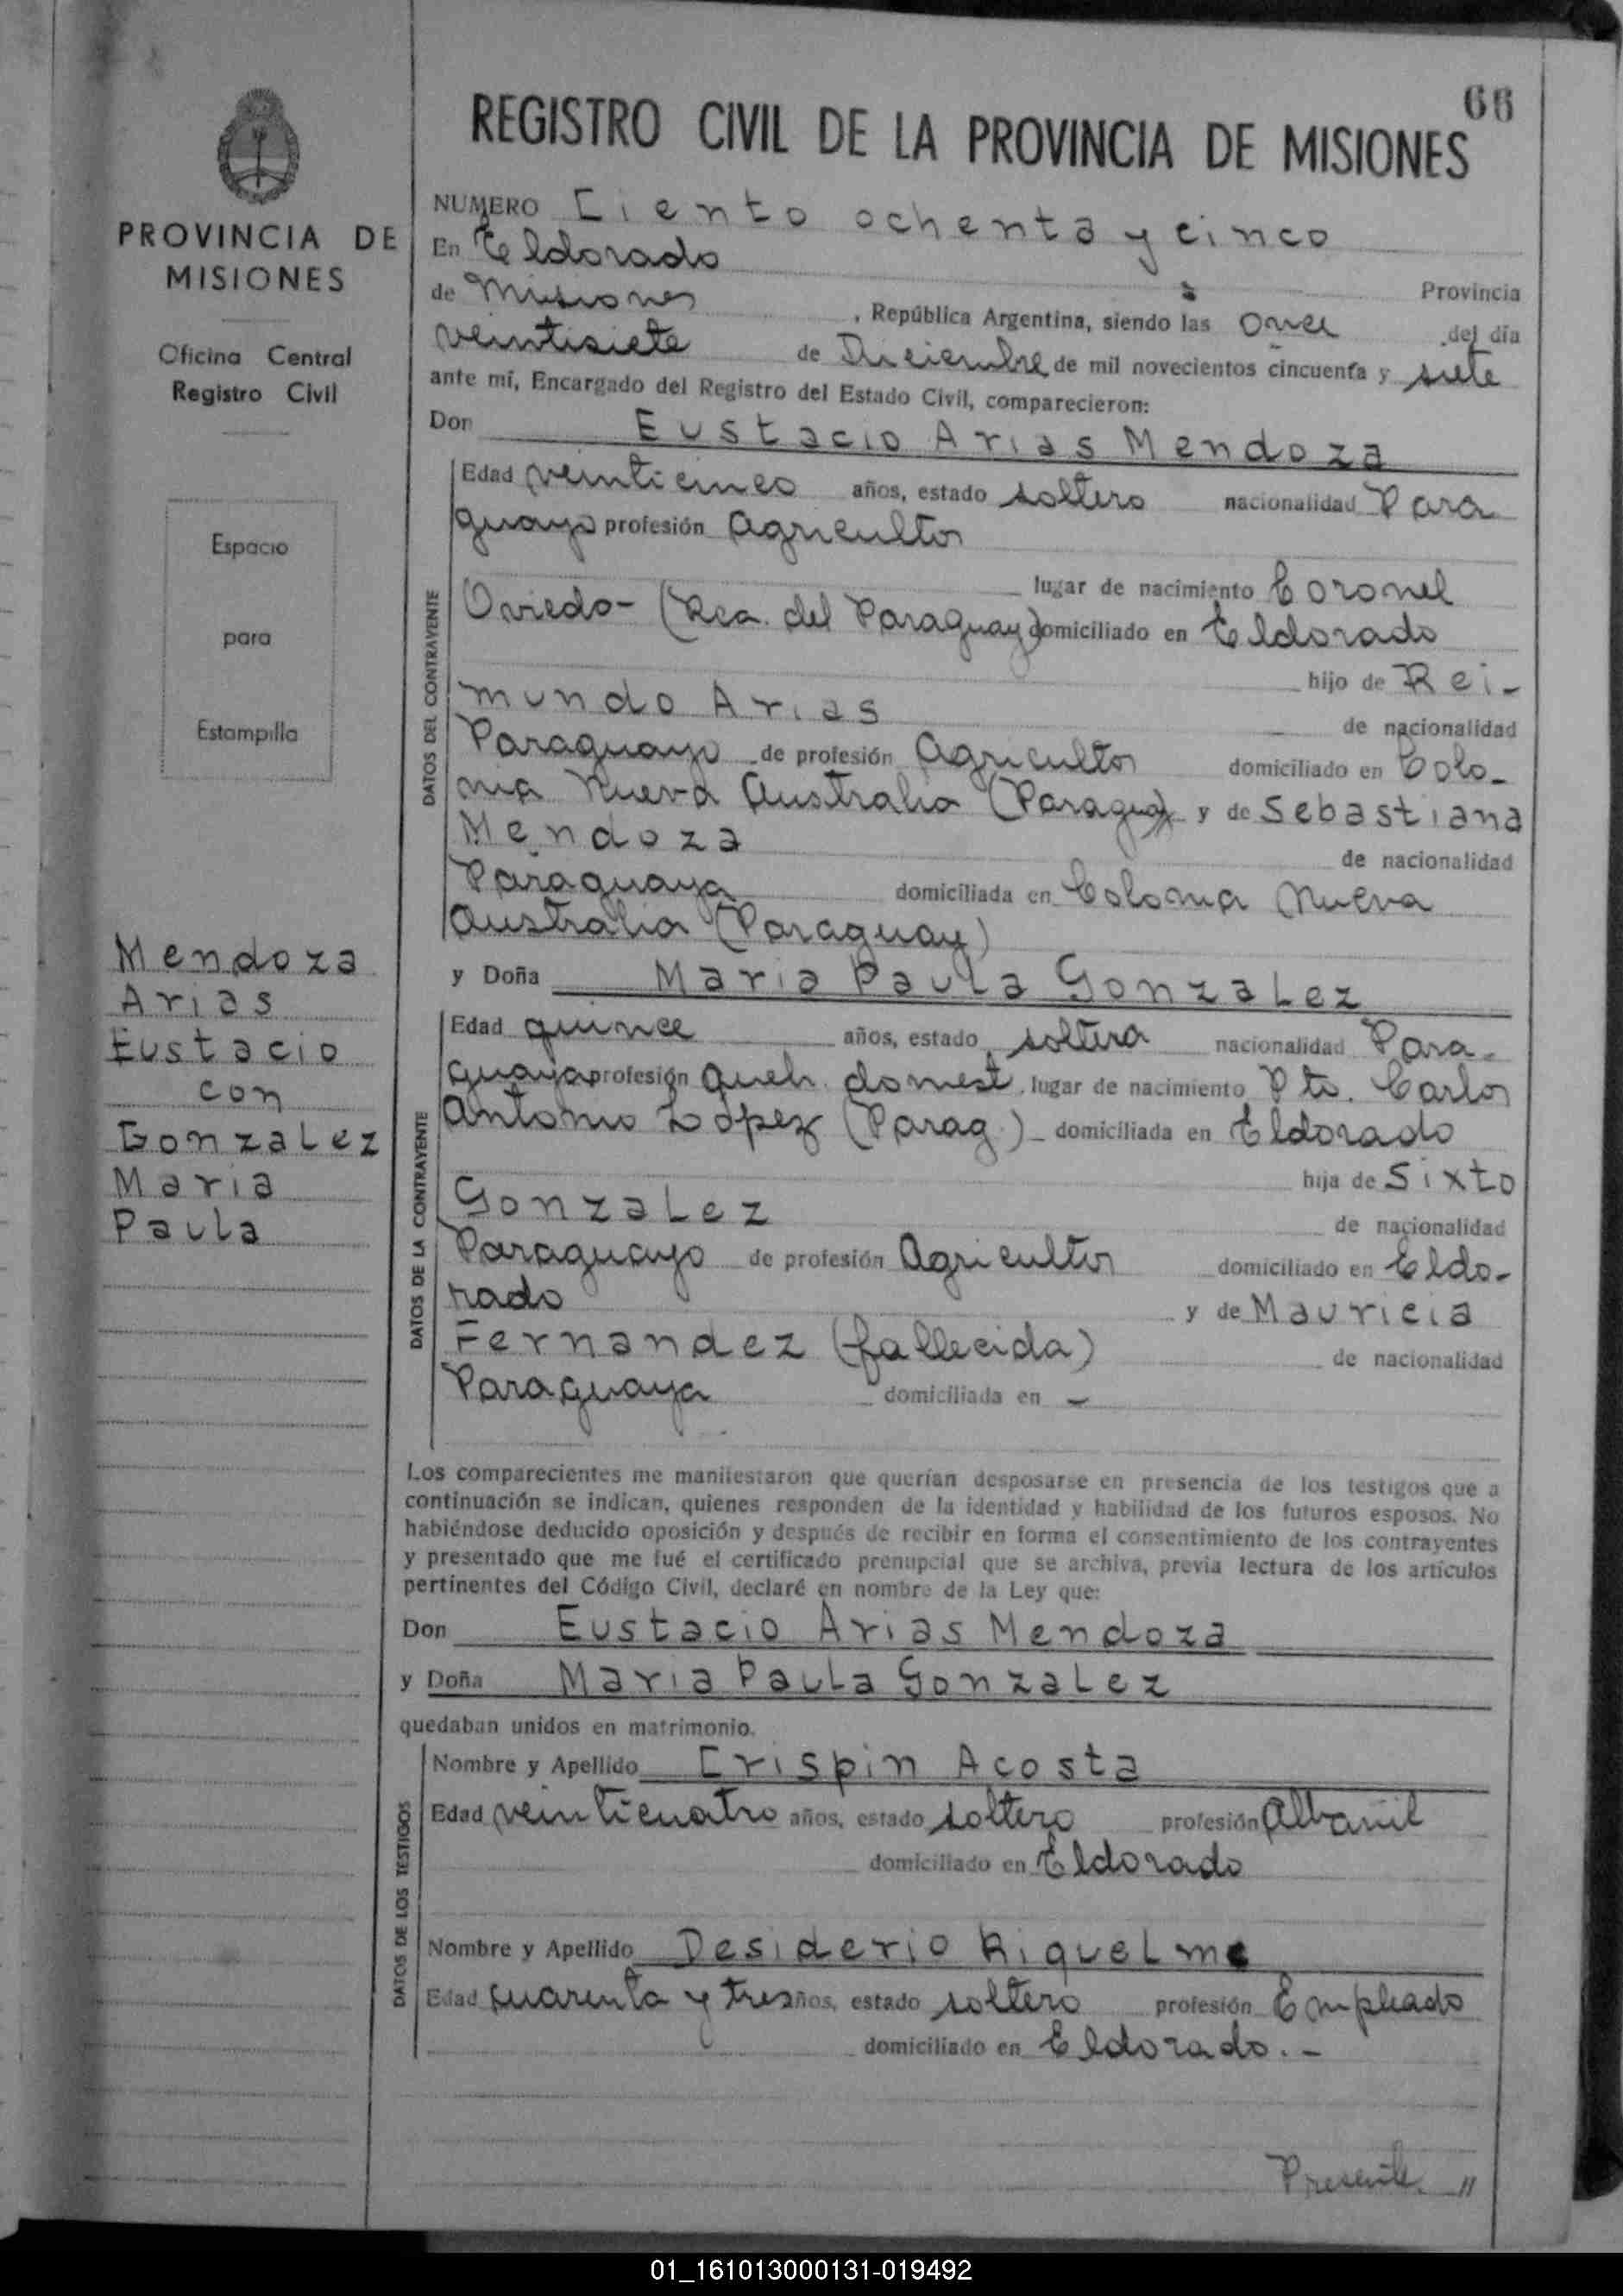 66
REGISTRO CIVIL DE LA PROVINCIA DE MISIONES
PROVINCIA DE
MISIONES
Oficina Central
Registro Civil
Espacio
para
Estampilla
Mendoza
Arias
Eustacio
con
Gonzalez
Maria
Paula
NUMERO Ciento ochenta y cinco
En Eldorado
de Misiones Provincia
, República Argentina, siendo las once del día
veintisiete de Diciembre de mil novecientos cincuenta y siete
ante mí, Encargado del Registro del Estado Civil, comparecieron:
Don Eustacio Arias Mendoza
DATOS DEL CONTRAYENTE
Edad veinticinco años, estado soltero nacionalidad Para
guayo profesión Agricultor
lugar de nacimiento Coronel
Oviedo- (Rca. del Paraguay) domiciliado en Eldorado
hijo de Rei-
mundo Arias
de nacionalidad
Paraguayo de profesión Agricultor domiciliado en Colo-
nia Nueva Australia (Paraguay) y de Sebastiana
Mendoza
de nacionalidad
Paraguaya domiciliada en Colonia Nueva
Australia (Paraguay)
y Doña Maria Paula Gonzalez
DATOS DE LA CONTRAYENTE
Edad quince años, estado soltera nacionalidad Para-
guaya profesión queh. domest. lugar de nacimiento Pto. Carlos
Antonio López (Parag.) - domiciliada en Eldorado
hija de Sixto
Gonzalez
de nacionalidad
Paraguayo de profesión Agricultor domiciliado en Eldo-
rado y de Mauricia
Fernandez (fallecida)
de nacionalidad
Paraguaya domiciliada en -
Los comparecientes me manifestaron que querían desposarse en presencia de los testigos que a
continuación se indican, quienes responden de la identidad y habilidad de los futuros esposos. No
habiéndose deducido oposición y después de recibir en forma el consentimiento de los contrayentes
y presentado que me fué el certificado prenupcial que se archiva, previa lectura de los artículos
pertinentes del Código Civil, declaré en nombre de la Ley que:
Don Eustacio Arias Mendoza
y Doña Maria Paula Gonzalez
quedaban unidos en matrimonio.
DATOS DE LOS TESTIGOS
Nombre y Apellido Crispin Acosta
Edad veinticuatro años, estado soltero profesión Albañil
domiciliado en Eldorado
Nombre y Apellido Desiderio Riquelme
Edad cuarenta y tres años, estado soltero profesión Empleado
domiciliado en Eldorado.-
Presente. //
01_161013000131-019492